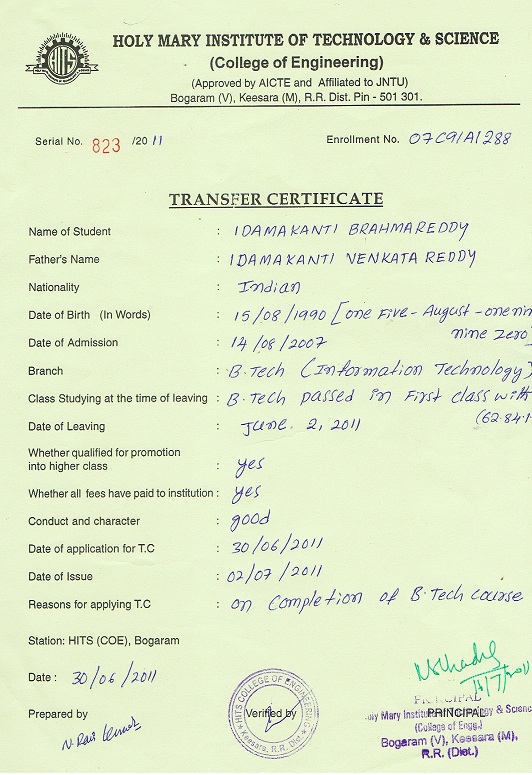 HITS
HOLY MARY INSTITUTE OF TECHNOLOGY & SCIENCE
(College of Engineering)
(Approved by AICTE and Affiliated to JNTU)
Bogaram (V), Keesara (M), R.R. Dist. Pin - 501 301.
Serial No. 823 /2011 Enrollment No. 07C91A1288
TRANSFER CERTIFICATE
Name of Student : IDAMAKANTI BRAHMAREDDY
Father's Name : IDAMAKANTI VENKATA REDDY
Nationality : Indian
Date of Birth (In Words) : 15/08/1990 [one Five - August - one nin
nine zero]
Date of Admission : 14/08/2007
Branch : B.Tech (Information Technology)
Class Studying at the time of leaving : B.Tech passed in First class with
(62.84.
Date of Leaving : June. 2, 2011
Whether qualified for promotion
into higher class : yes
Whether all fees have paid to institution : yes
Conduct and character : good
Date of application for T.C : 30/06/2011
Date of Issue : 02/07/2011
Reasons for applying T.C : on Completion of B.Tech course
Station: HITS (COE), Bogaram
Date : 30/06/2011
Prepared by Verified by PRINCIPAL
HITS COLLEGE OF ENGINEERING
Keesara, R.R. Dist.
PRINCIPAL
Mary Institute of Technology & Scienc
(College of Engg.)
Bogaram (V), Keesara (M),
R.R. (Dist.)